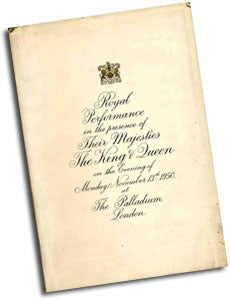 Royal
Performance
in the presence of
Their Majesties
The King & Queen
on the Evening of
Monday, November 13th 1950,
at
The Palladium,
London.